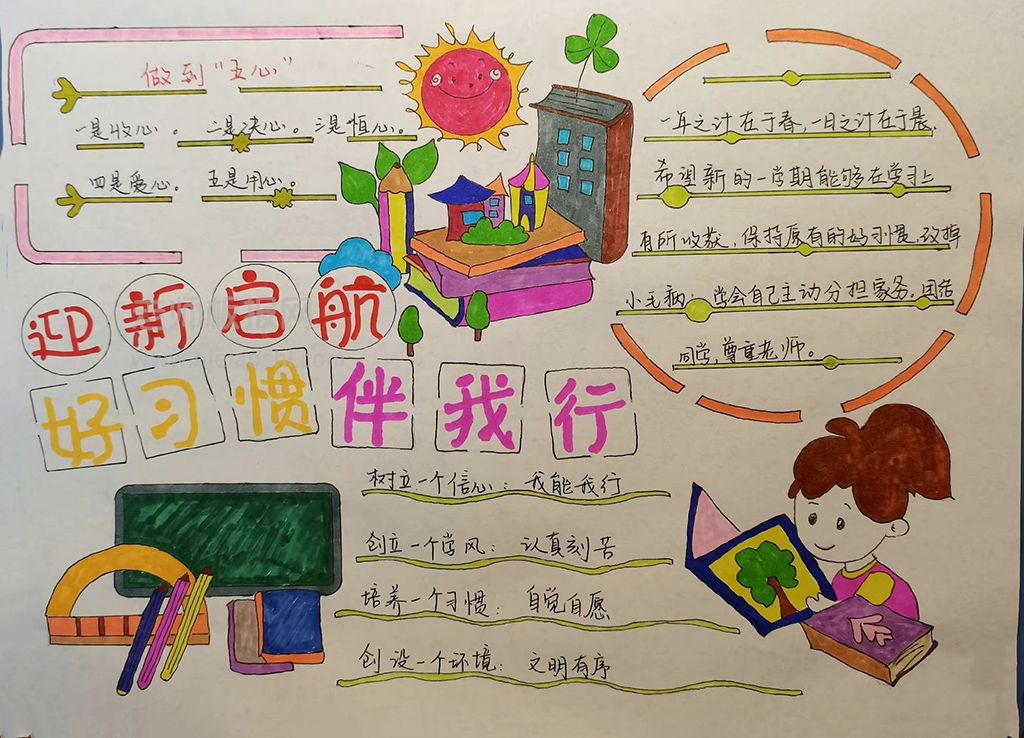 做到“五心”
一是收心。二是决心。三是恒心。
四是爱心。五是用心。
迎新启航
好习惯伴我行
一年之计在于春,一日之计在于晨.
希望新的一学期能够在学习上
有所收获,保持原有的好习惯,改掉
小毛病;学会自己主动分担家务.团结
同学,尊重老师。
树立一个信心:我能我行
创立一个学风:认真刻苦
培养一个习惯:自觉自愿
创设一个环境:文明有序